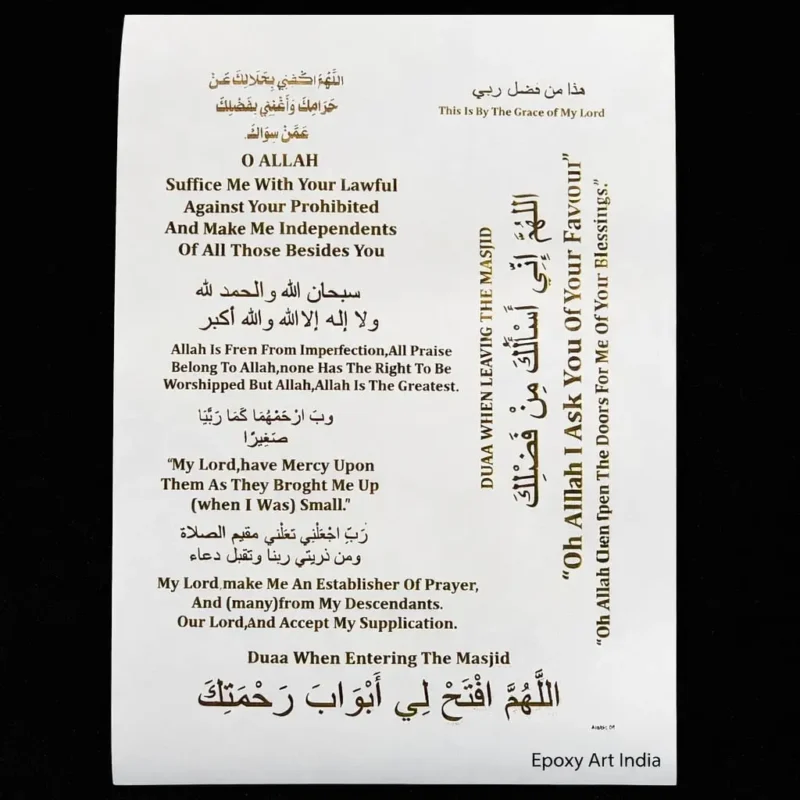 اللَّهُمَّ اكْفِنِي بِحَلَالِكَ عَنْ
حَرَامِكَ وَأَغْنِنِي بِفَضْلِكَ
عَمَّنْ سِوَاكَ.
O ALLAH
Suffice Me With Your Lawful
Against Your Prohibited
And Make Me Independents
Of All Those Besides You
سبحان الله والحمد لله
ولا إله إلا الله والله أكبر
Allah Is Fren From Imperfection,All Praise
Belong To Allah,none Has The Right To Be
Worshipped But Allah,Allah Is The Greatest.
وبَ ارْحَمْهُمَا كَمَا رَبَّيَا
صَغِيرًا
“My Lord,have Mercy Upon
Them As They Broght Me Up
(when I Was) Small.”
رَبِّ اجْعَلْنِي تعَلْني مقيم الصلاة
ومن ذريتي ربنا وتقبل دعاء
My Lord,make Me An Establisher Of Prayer,
And (many)from My Descendants.
Our Lord,And Accept My Supplication.
Duaa When Entering The Masjid
اللَّهُمَّ افْتَحْ لِي أَبْوَابَ رَحْمَتِكَ
هذا من فضل ربي
This Is By The Grace of My Lord
DUAA WHEN LEAVING THE MASJID
اللهُمَّ إِنِّي أَسْأَلُكَ مِنْ فَضْلِكَ
“Oh Alllah I Ask You Of Your Favour”
“Oh Allah Open The Doors For Me Of Your Blessings.”
Epoxy Art India